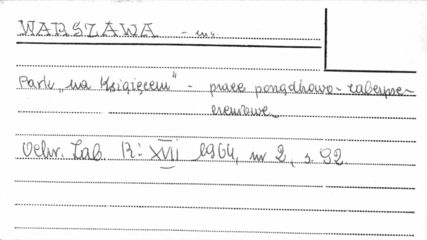 WARSZAWA - ms.
Park „na Książęcem" - prace porządkowo-zabezpie-
czeniowe
Ochr. Zab. R: XVII 1964, nr 2, s. 92